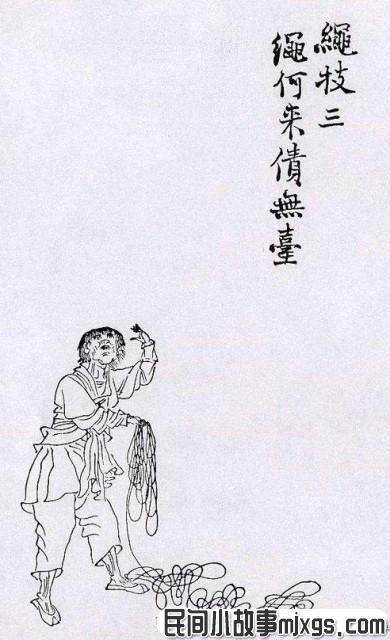 繩技三
繩何来債無臺
民间小故事mjxgs.com